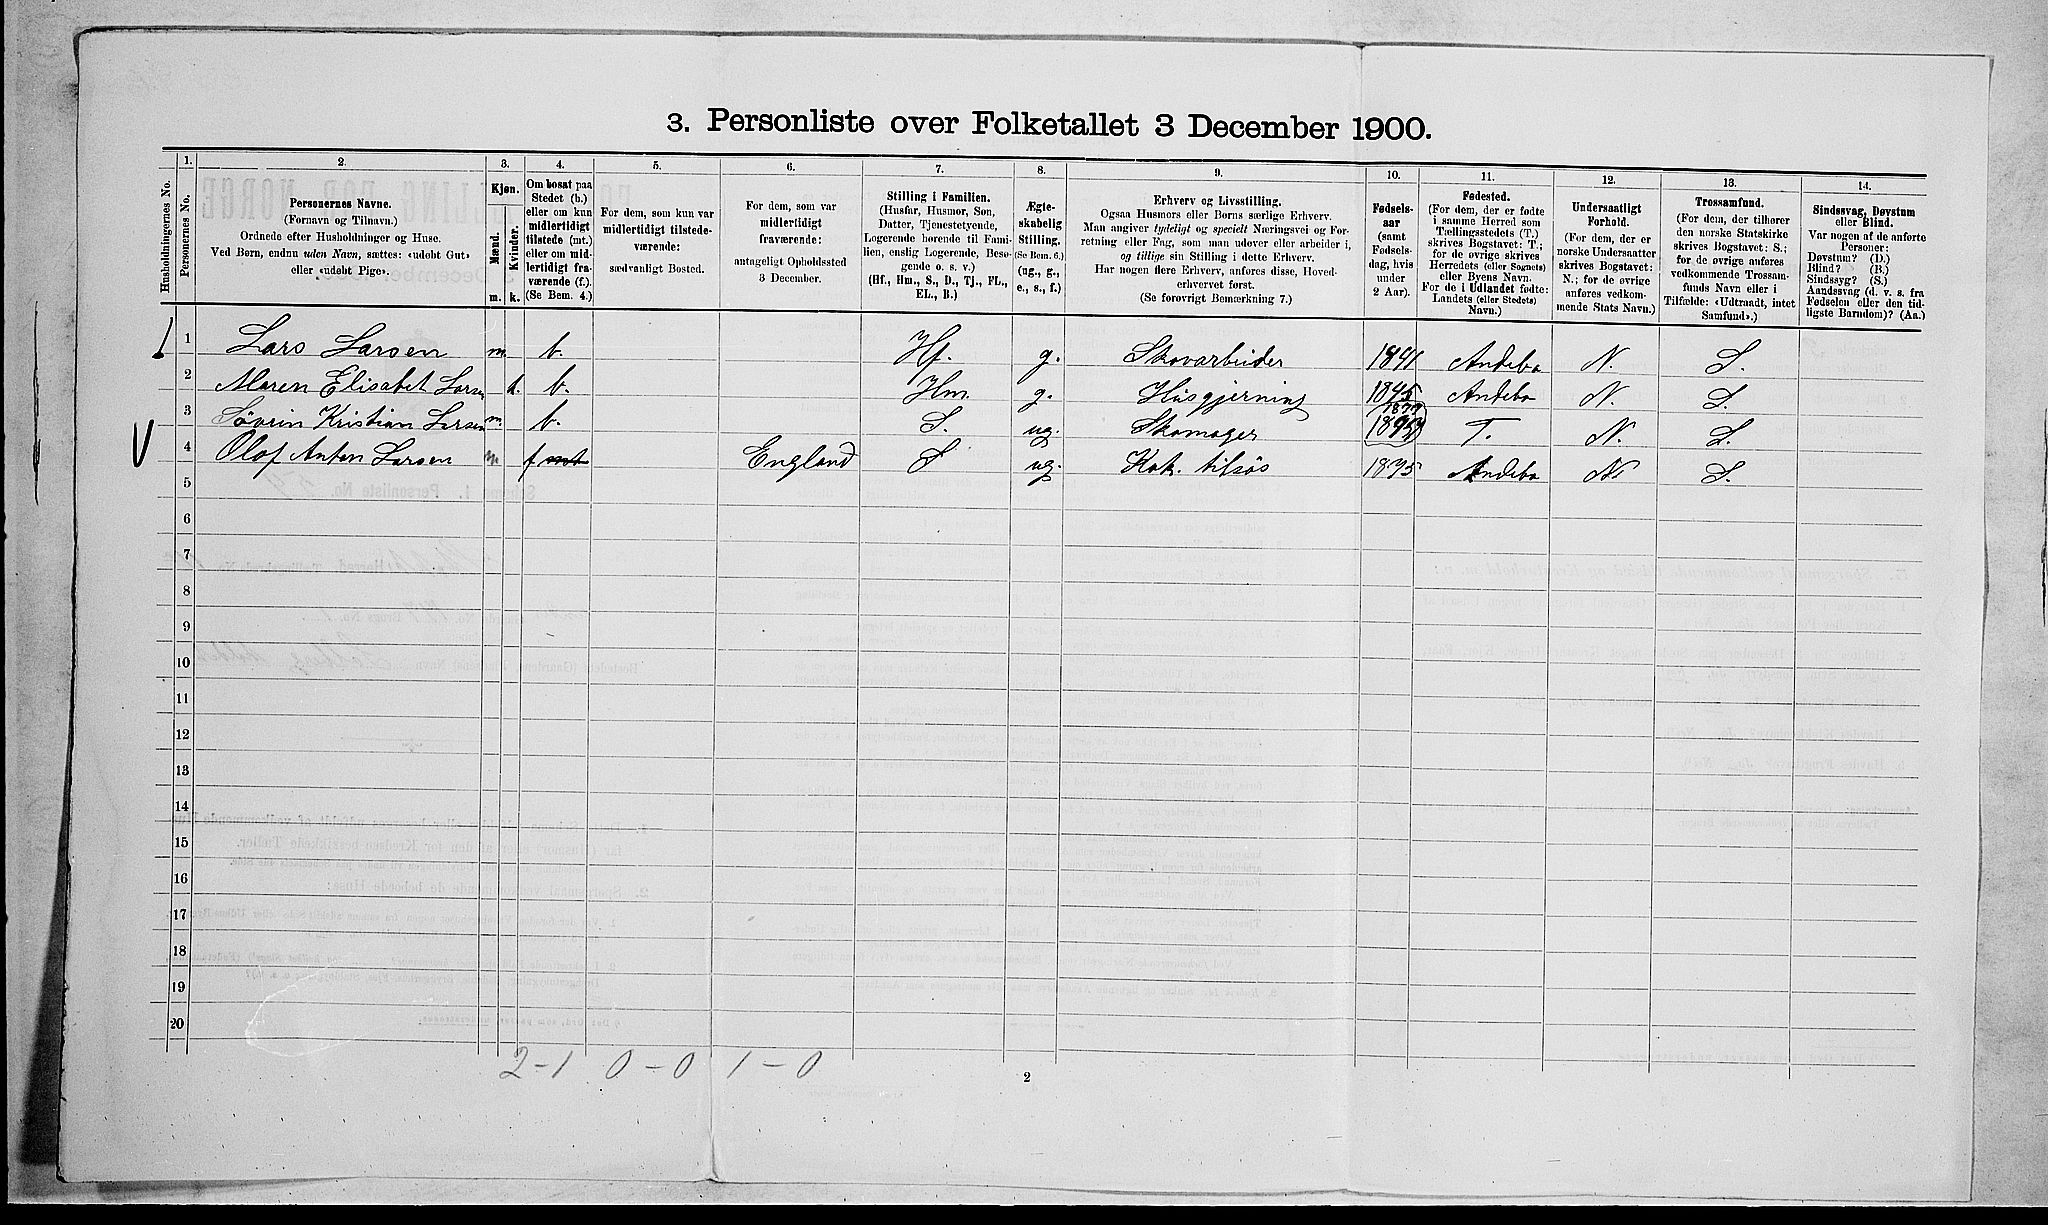 3. Personliste over Folketallet 3 December 1900.
1. 2. 3. 4. 5. 6. 7. 8. 9. 10. 11. 12. 13. 14.
Husholdningernes No.
Personernes No.
Personernes Navne.
(Fornavn og Tilnavn.)
Ordnede efter Husholdninger og Huse.
Ved Børn, endnu uden Navn, sættes: «udøbt Gut»
eller «udøbt Pige».
Kjøn.
Mænd.
Kvinder.
m. k.
Om bosat paa
Stedet (b.)
eller om kun
midlertidigt
tilstede (mt.)
eller om mid-
lertidigt fra-
værende (f.).
(Se Bem. 4.)
For dem, som kun var
midlertidigt tilstede-
værende:
sædvanligt Bosted.
For dem, som var
midlertidigt
fraværende:
antageligt Opholdssted
3 December.
Stilling i Familien.
(Husfar, Husmor, Søn,
Datter, Tjenestetyende,
Logerende hørende til Fami-
lien, enslig Logerende, Besø-
gende o. s. v.)
(Hf., Hm., S., D., Tj., FL.,
EL., B.)
Ægte-
skabelig
Stilling.
(Se Bem. 6.)
(ug., g.,
e., s., f.)
Erhverv og Livsstilling.
Ogsaa Husmors eller Børns særlige Erhverv.
Man angiver tydeligt og specielt Næringsvei og For-
retning eller Fag, som man udøver eller arbeider i,
og tillige sin Stilling i dette Erhverv.
Har nogen flere Erhverv, anføres disse, Hoved-
erhvervet først.
(Se forøvrigt Bemærkning 7.)
Fødsels-
aar
(samt
Fødsels-
dag, hvis
under
2 Aar).
Fødested.
(For dem, der er fødte
i samme Herred som
Tællingsstedets (T.)
skrives Bogstavet: T.;
for de øvrige skrives
Herredets (eller Sognets)
eller Byens Navn.
For de i Udlandet fødte:
Landets (eller Stedets)
Navn.)
Undersaatligt
Forhold.
(For dem, der er
norske Undersaatter
skrives Bogstavet:
N.; for de øvrige
anføres vedkom-
mende Stats Navn.)
Trossamfund.
(For dem, der tilhører
den norske Statskirke
skrives Bogstavet: S.;
for de øvrige anføres
vedkommende Trossam-
funds Navn eller i
Tilfælde: «Udtraadt, intet
Samfund».)
Sindssvag, Døvstum
eller Blind.
Var nogen af de anførte
Personer:
Døvstum? (D.)
Blind? (B.)
Sindssyg? (S.)
Aandssvag (d. v. s. fra
Fødselen eller den tid-
ligste Barndom)? (Aa.)
1 Lars Larsen m. b. Hf. g. Skovarbeider 1841 Andebo N. S.
2 Maren Elisabet Larsen k. b. Hm. g. Husgjerning 1845 Andebo N. S.
3 Søvrin Kristian Larsen m. b. S. ug. Skomager 1877 T. N. S.
4 Olof Anton Larsen m f mt England S ug. Kok. tilsøs 1875 Andebo N. S.
5
6
7
8
9
10
11
12
13
14
15
16
17
18
19
20
2-1 0-0 1-0
2